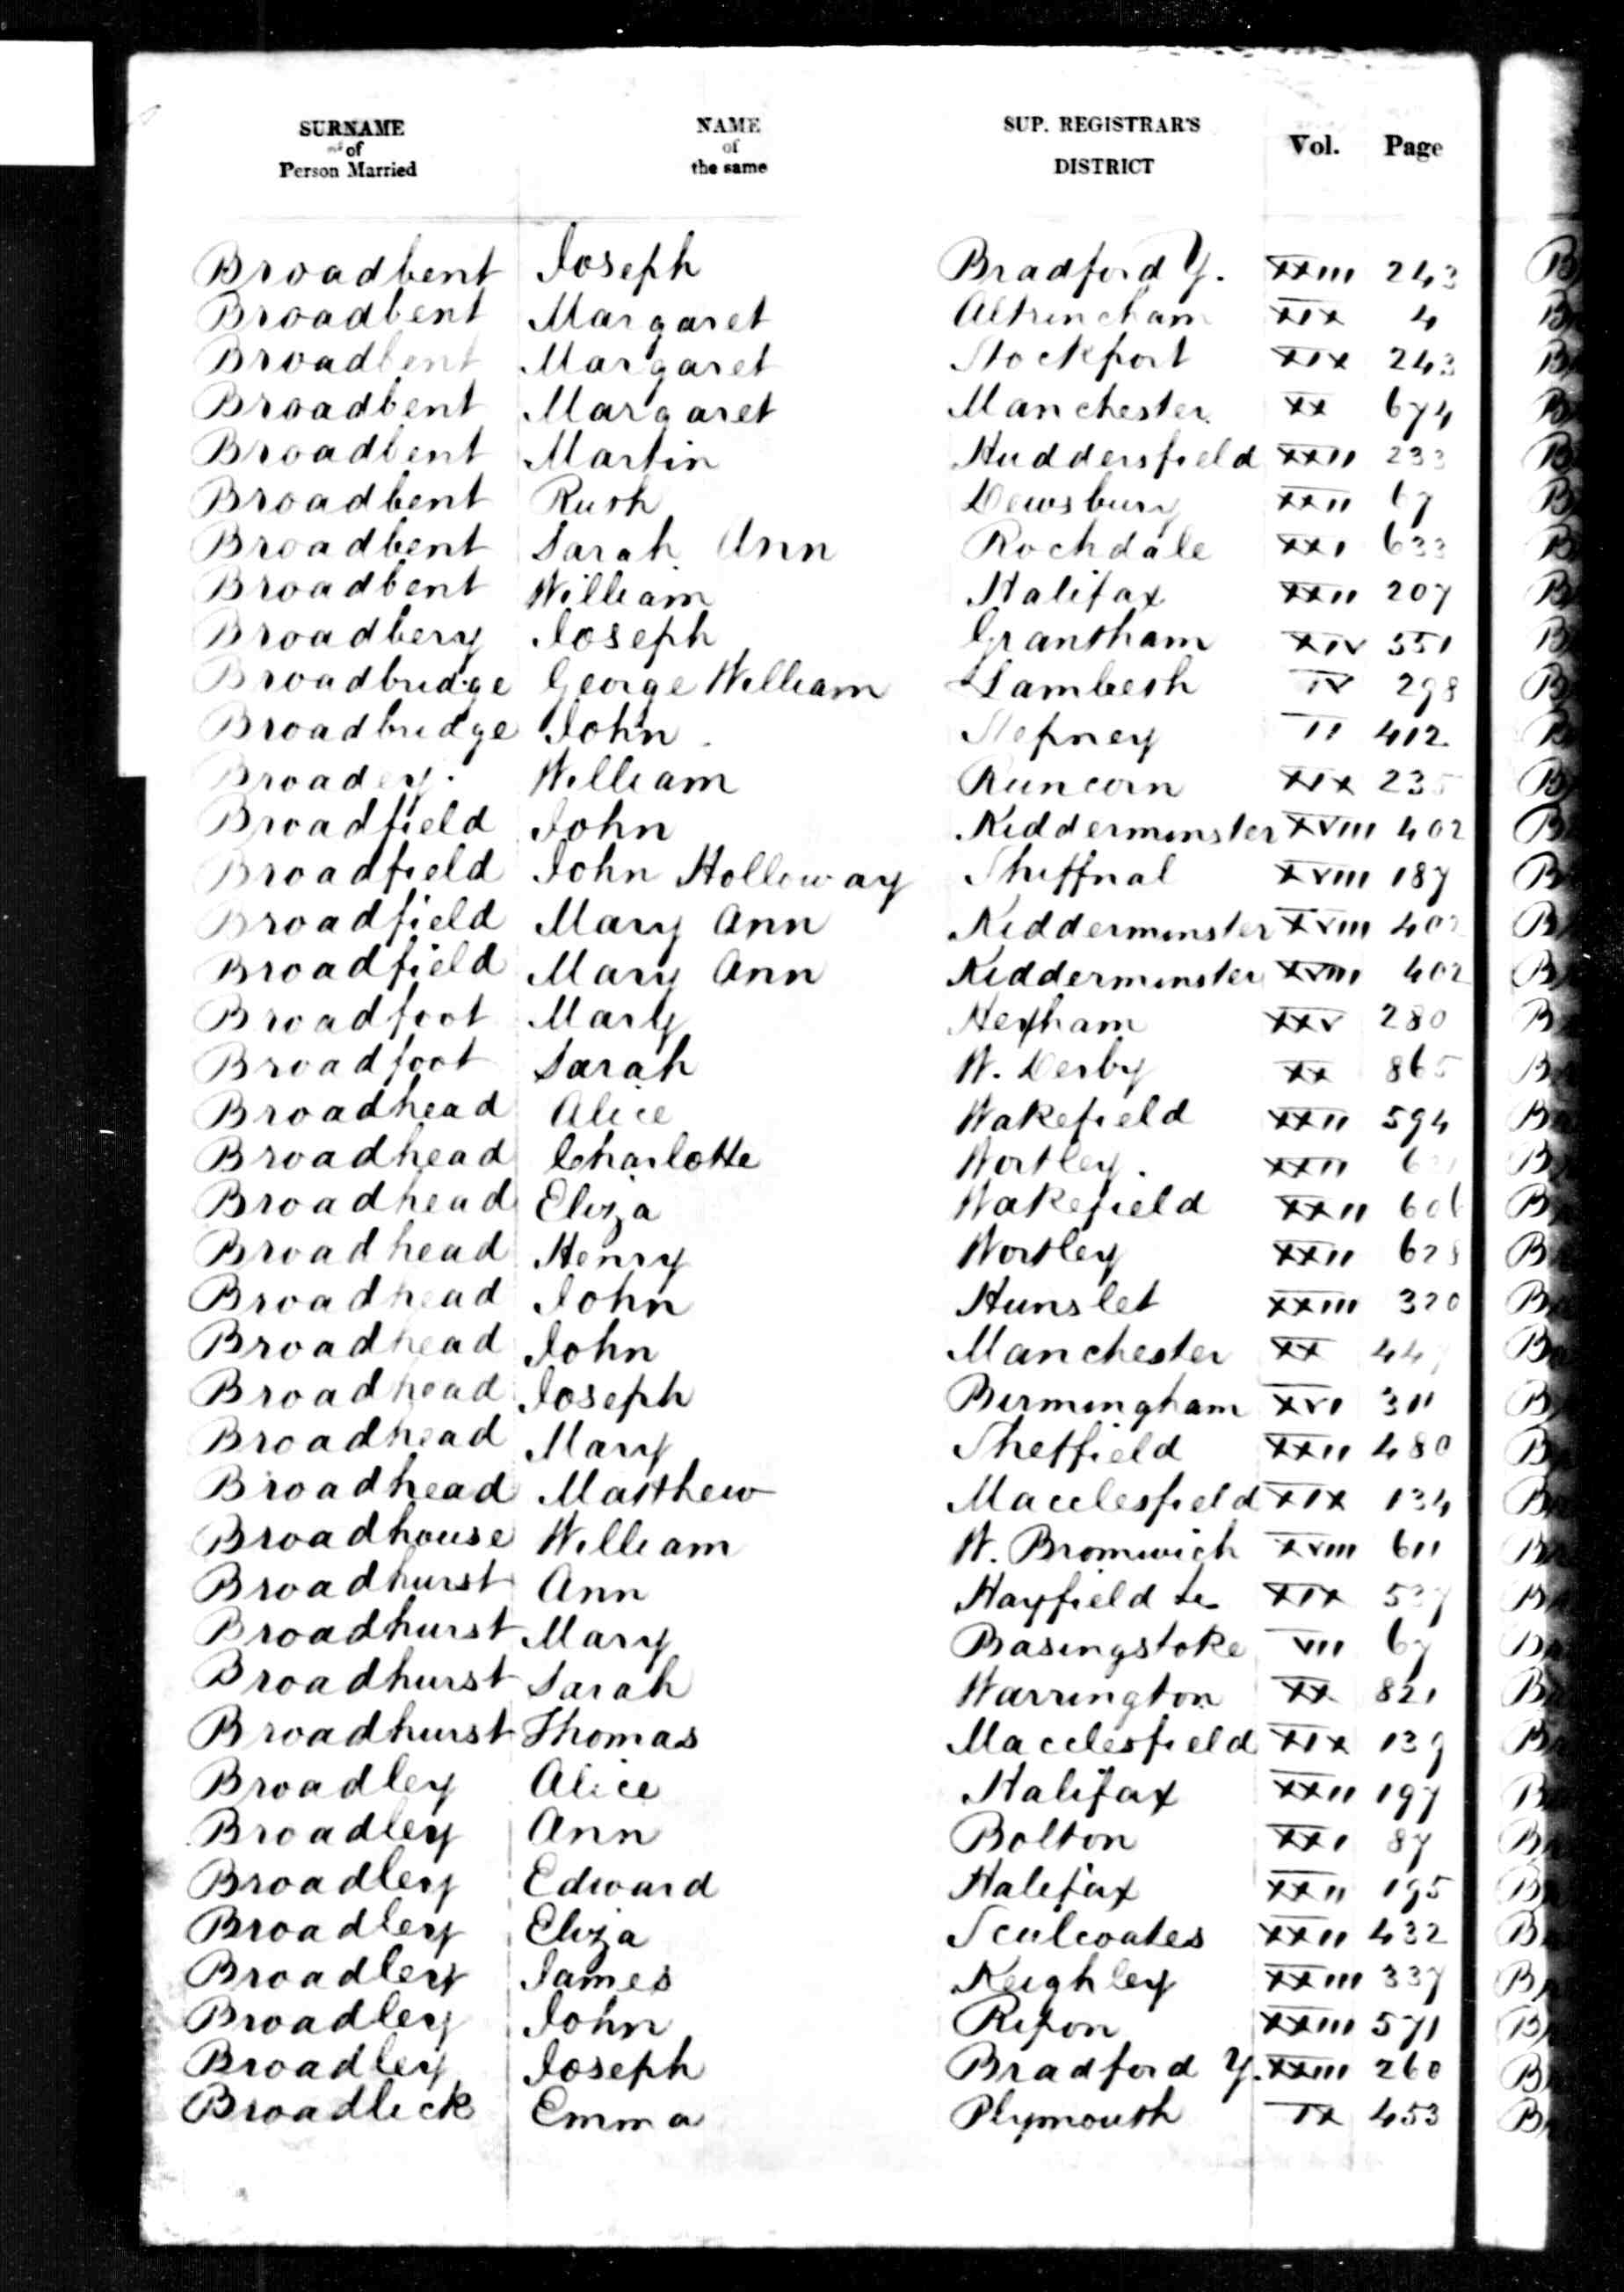 SURNAME of Person Married NAME of the same SUP. REGISTRAR'S DISTRICT Vol. Page
Broadbent Joseph Bradford Y. XXIII 243
Broadbent Margaret Altrincham XIX 4
Broadbent Margaret Stockport XIX 243
Broadbent Margaret Manchester XX 674
Broadbent Martin Huddersfield XXII 233
Broadbent Ruth Dewsbury XXII 67
Broadbent Sarah Ann Rochdale XXI 633
Broadbent William Halifax XXII 207
Broadbery Joseph Grantham XIV 551
Broadbridge George William Lambeth IV 298
Broadbridge John Stepney II 412
Broadey William Runcorn XIX 235
Broadfield John Kidderminster XVIII 402
Broadfield John Holloway Shiffnal XVIII 187
Broadfield Mary Ann Kidderminster XVIII 402
Broadfield Mary Ann Kidderminster XVIII 402
Broadfoot Mary Hexham XXV 280
Broadfoot Sarah W. Derby XX 865
Broadhead Alice Wakefield XXII 594
Broadhead Charlotte Wortley. XXII
Broadhead Eliza Wakefield XXII 606
Broadhead Henry Wortley XXII 628
Broadhead John Hunslet XXIII 320
Broadhead John Manchester XX 447
Broadhead Joseph Birmingham XVI 311
Broadhead Mary Sheffield XXII 480
Broadhead Matthew Macclesfield XIX 134
Broadhouse William W. Bromwich XVIII 611
Broadhurst Ann Hayfield &c XIX 537
Broadhurst Mary Basingstoke VIII 67
Broadhurst Sarah Warrington XX 821
Broadhurst Thomas Macclesfield XIX 139
Broadley Alice Halifax XXII 197
Broadley Ann Bolton XXI 87
Broadley Edward Halifax XXII 195
Broadley Eliza Sculcoates XXII 432
Broadley James Keighley XXIII 337
Broadley John Ripon XXIII 571
Broadley Joseph Bradford Y. XXIII 260
Broadlick Emma Plymouth IX 453